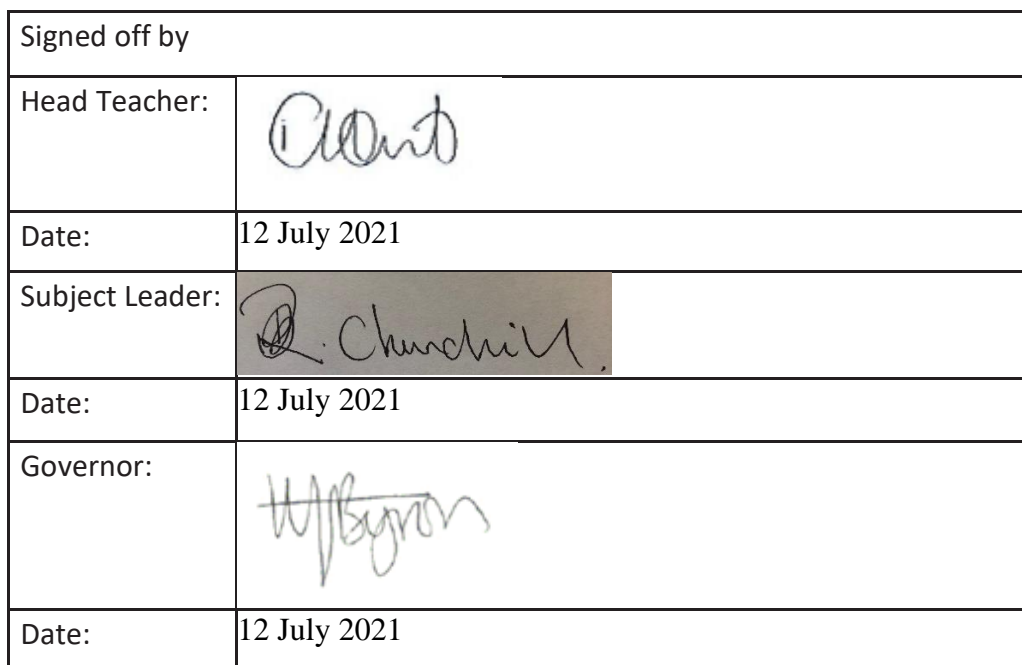 Signed off by
Head Teacher:
Date: 12 July 2021
Subject Leader: R. Churchill.
Date: 12 July 2021
Governor: WJByron
Date: 12 July 2021